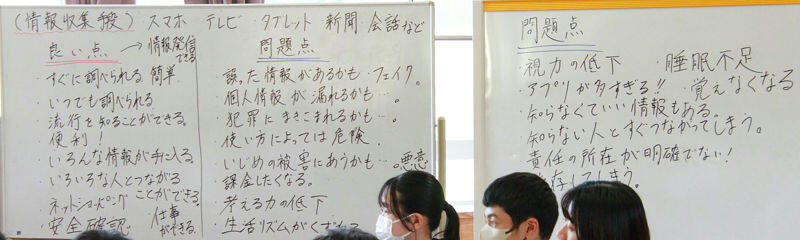 (情報収集手段) スマホ テレビ・タブレット 新聞 会話など
良い点 → 情報発信できる
・すぐに調べられる 簡単
・いつでも調べられる
・流行を知ることができる。
便利！
・いろんな情報が手に入る
・いろいろな人とつながることができる。
・ネットショッピング
・安全確認 仕事ができる。
問題点
・誤った情報があるかも・フェイク。
・個人情報が漏れるかも…。
・犯罪にまきこまれるかも…。
・使い方によっては危険。
・いじめの被害にあうかも…。悪意
・課金したくなる。
・考える力の低下
・生活リズムがくずれる
問題点
・視力の低下 ・睡眠不足
・アプリが多すぎる!! ・覚えなくなる
・知らなくていい情報もある。
・知らない人とすぐつながってしまう。
・責任の所在が明確でない！
存してしまう。